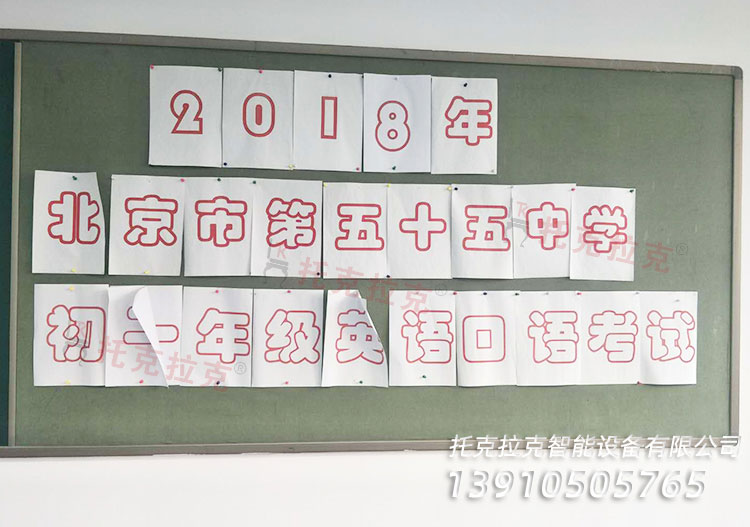 2018年
北京市第五十五中学
托克拉克®
托克拉克®
初一年级英语口语考试
托克拉克®
托克拉克智能设备有限公司
13910505765